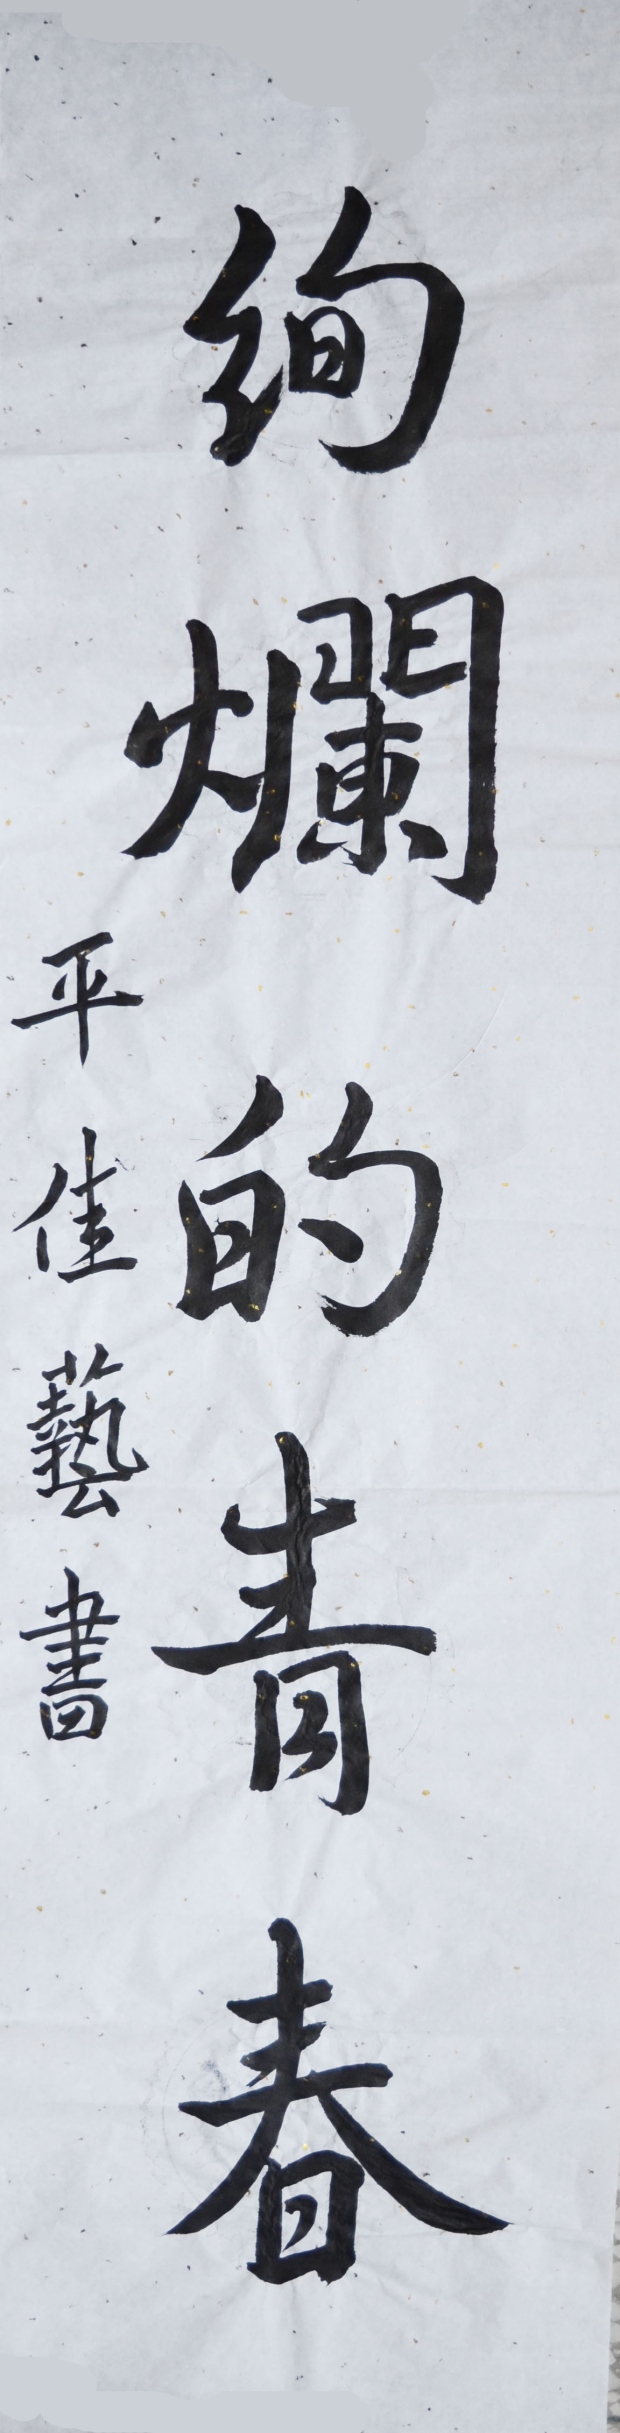 絢爛的青春
平佳藝書